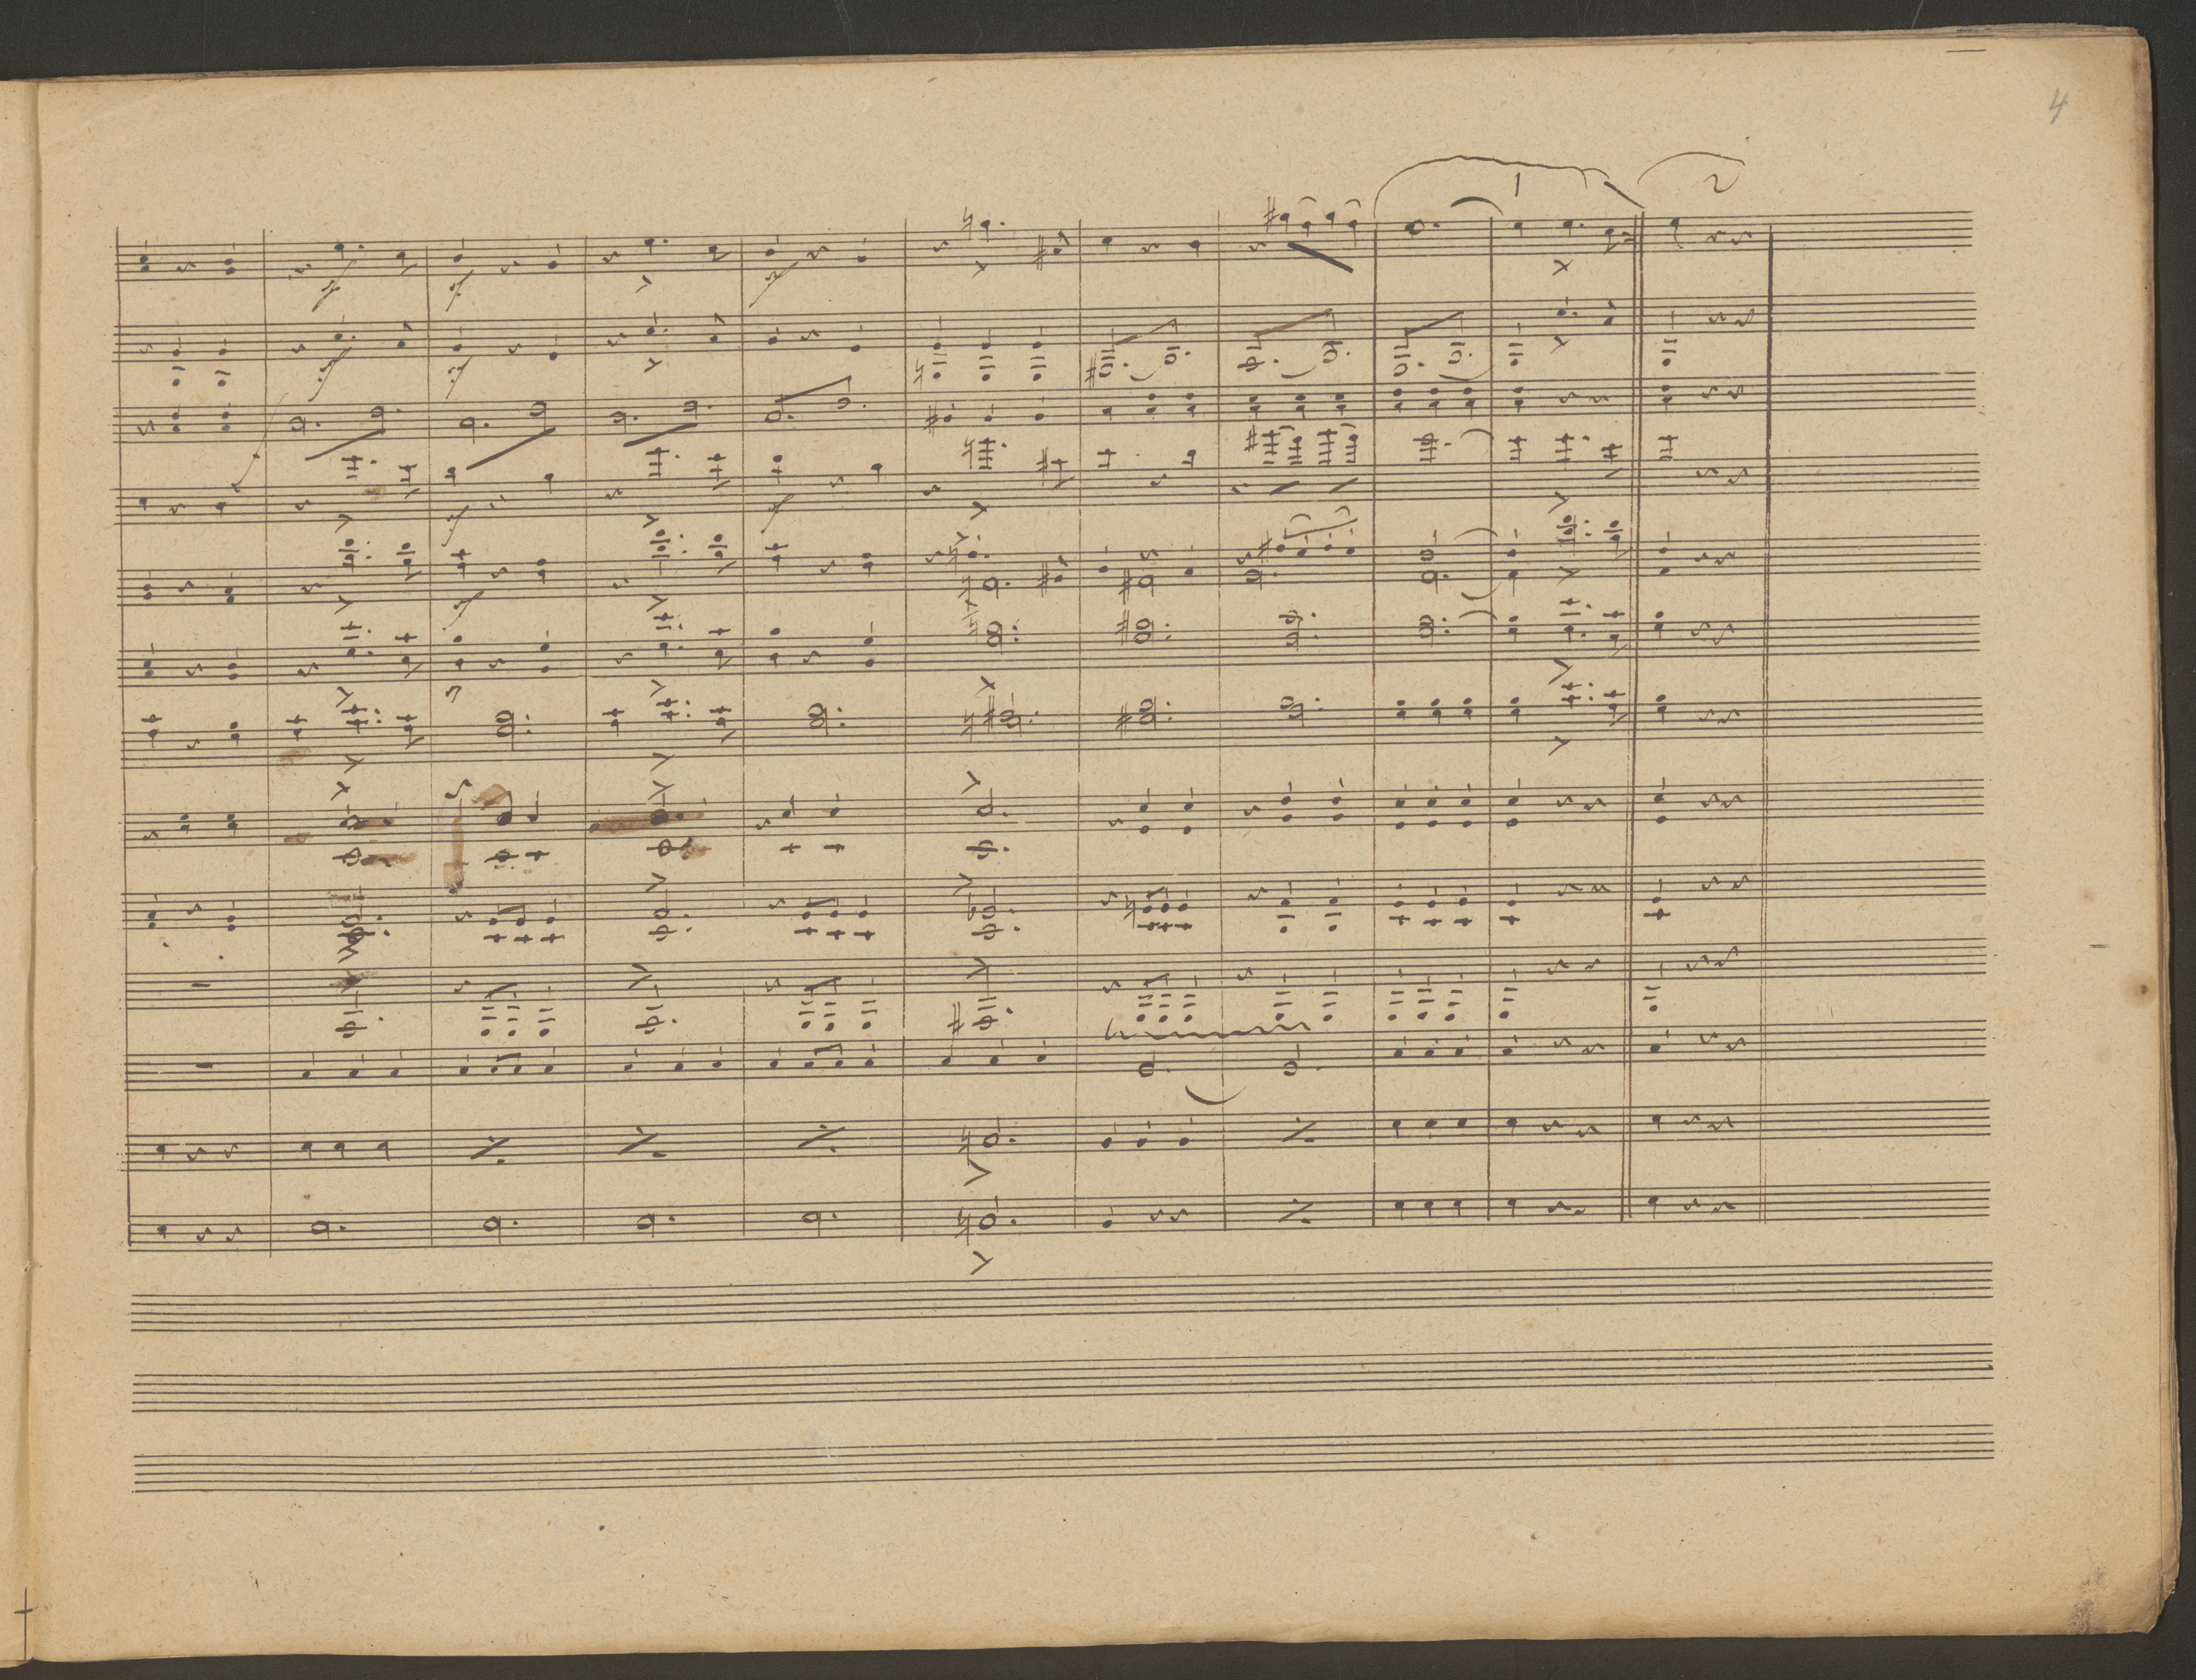 4
1 2